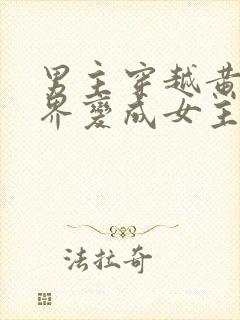 男主穿越黄
界變成女主
法拉奇